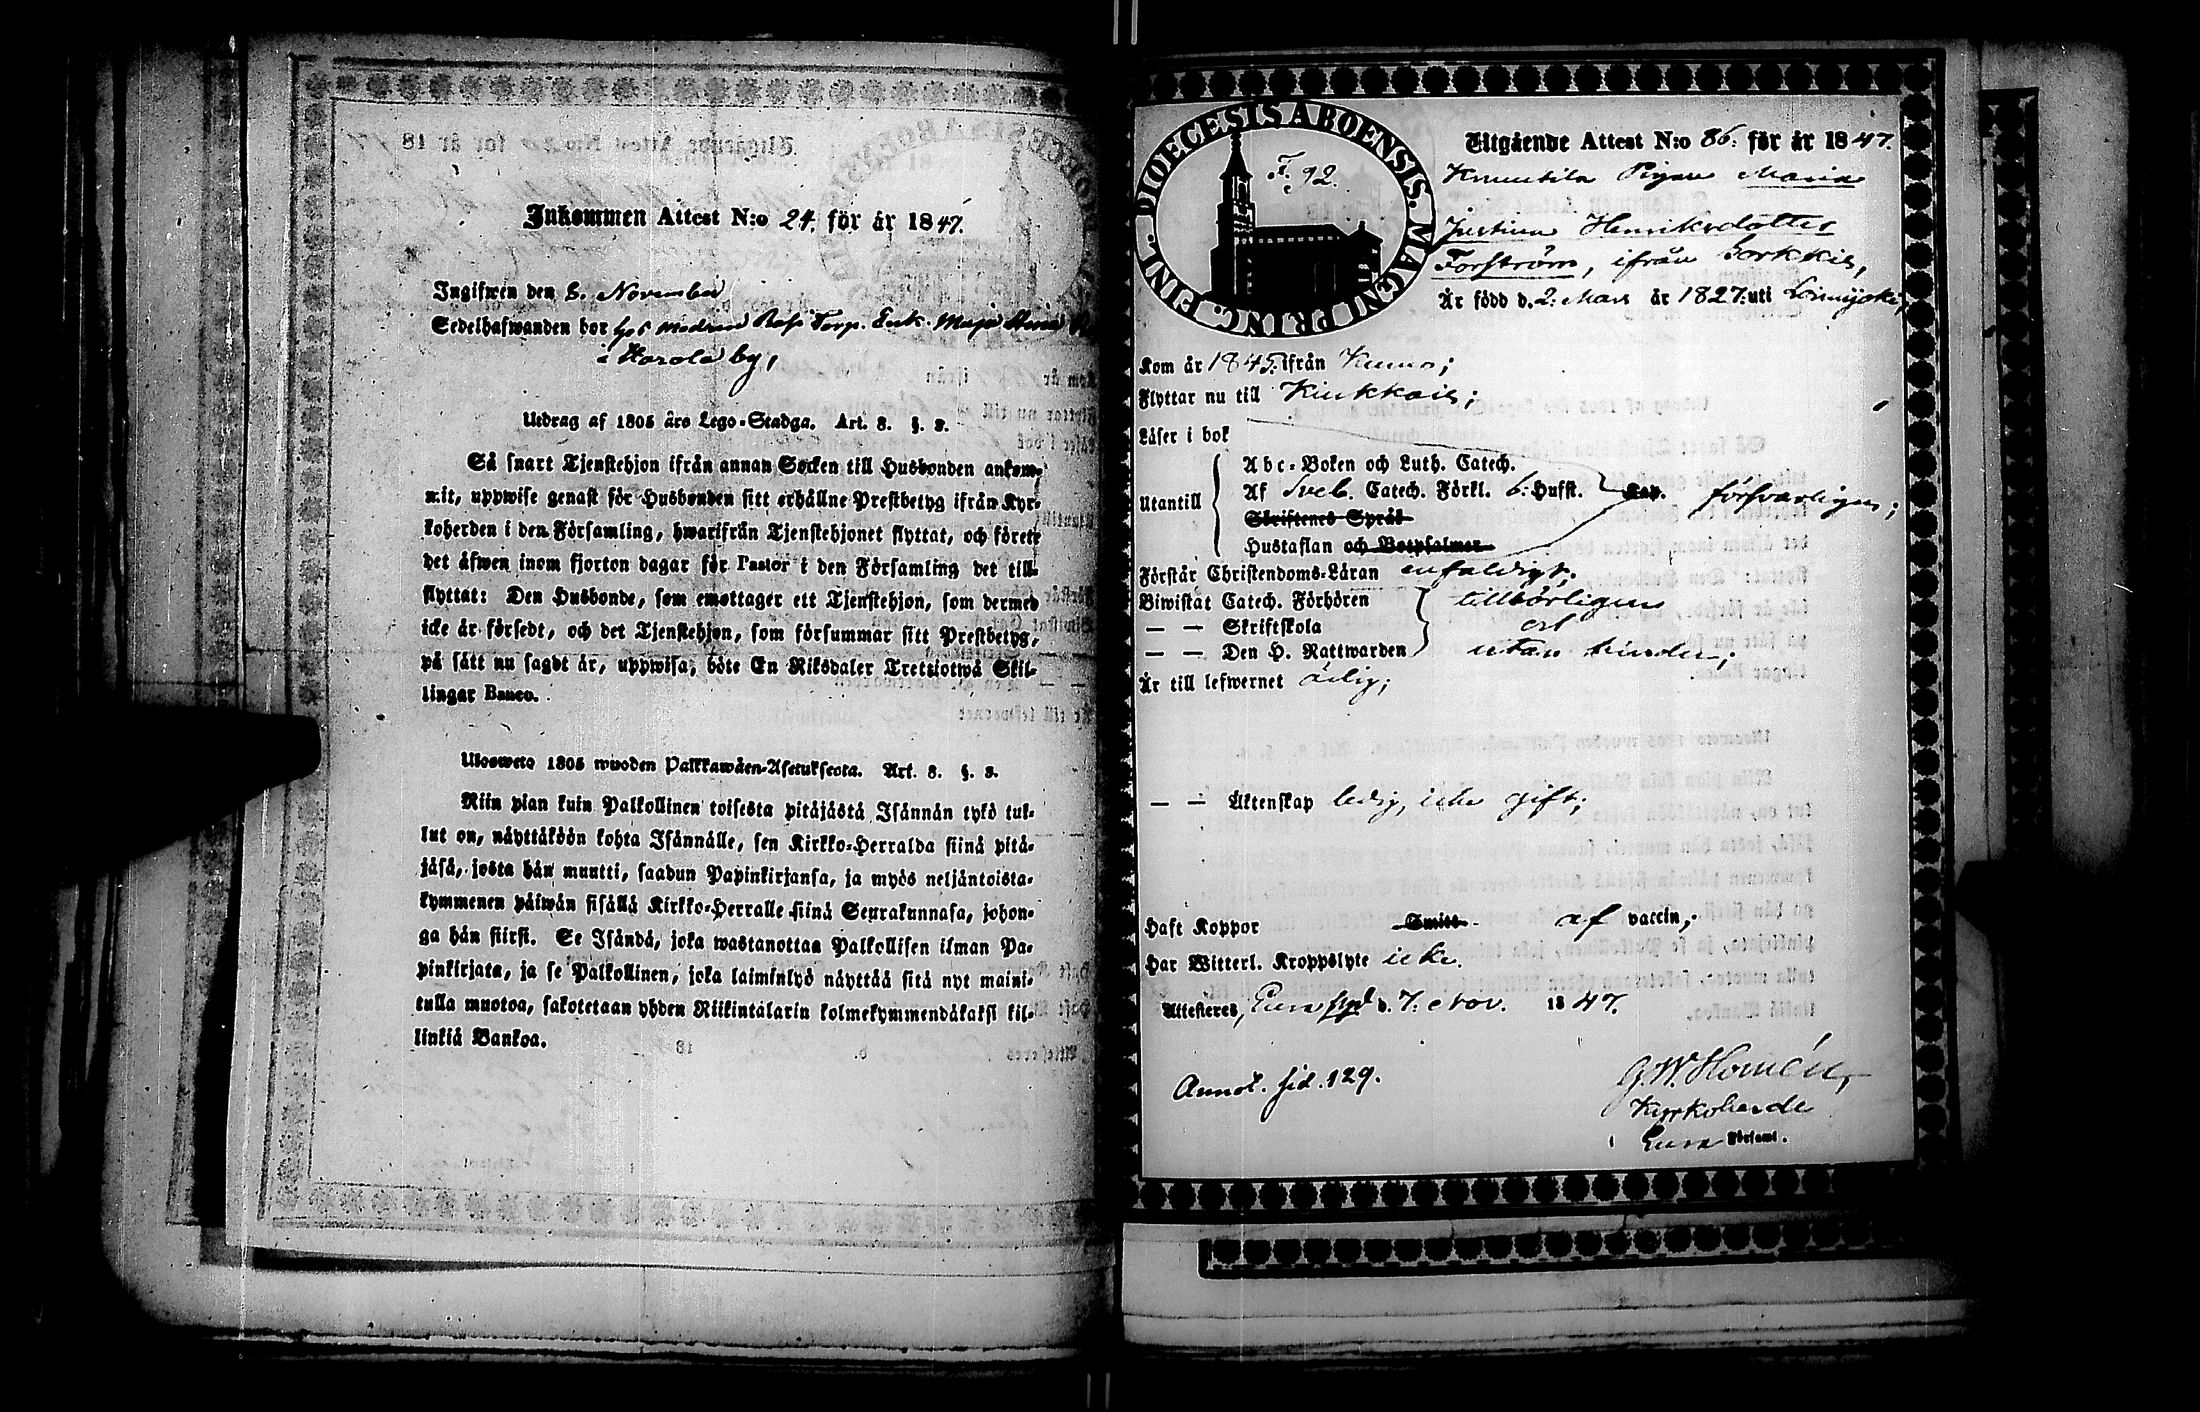 Inkommen Attest N:o 24. för år 1847.
Ingifwen den 8. November
Sedelhafwanden bor hos modren Torp. Enk. Maja
i Harola by,
Utdrag af 1805 års Lego-Stadga. Art. 8. §. 3.
Så snart Tjenstehjon ifrån annan Socken till Husbonden ankom-
mit, uppwise genast för Husbonden sitt erhållne Prestbetyg ifrån Kyr-
koherden i den Församling, hwarifrån Tjenstehjonet flyttat, och förete
det äfwen inom fjorton dagar för Pastor i den Församling det till-
flyttat: Den Husbonde, som emottager ett Tjenstehjon, som dermed
icke är försedt, och det Tjenstehjon, som försummar sitt Prestbetyg,
på sätt nu sagdt är, uppwisa, böte En Riksdaler Trettiotwå Skil-
lingar Banco.
Ulosweto 1805 wuoden Palkkawäen-Asetuksesta. Art. 8. §. 3.
Niin pian kuin Palkollinen toisesta pitäjästä Isännän tykö tul-
lut on, näyttäköön kohta Isännälle, sen Kirkko-Herralda siinä pitä-
jäsä, josta hän muutti, saadun Papinkirjansa, ja myös neljäntoista-
kymmenen päiwän sisällä Kirkko-Herralle siinä Seurakunnasa, johon-
ga hän siirsi. Se Isändä, joka wastanottaa Palkollisen ilman Pa-
pinkirjata, ja se Palkollinen, joka laiminlyö näyttää sitä nyt maini-
tulla muotoa, sakotetaan yhden Riikintalarin kolmekymmendäkaksi kil-
linkiä Bankoa.
DIOECESIS ABOENSIS. MAGNI PRINC. FINL.
F. 92.
Utgående Attest N:o 86: för år 1847.
Knuutila Pigan Maria
Justina Henriksdotter
Forström, ifrån Sorkkis,
Är född d. 2. Mars år 1827: uti Loimijoki,
Kom år 1845. ifrån Kumo;
Flyttar nu till Kiukkais;
Läser i bok
Utantill
Abc-Boken och Luth. Catech.
Af Sveb. Catech. Förkl. 6: Hufst. Kap. försvarligen;
Skriftenes Språk
Hustaflan och Botpsalmer
Förstår Christendoms-Läran enfaldigt;
Biwistat Catech. Förhören tillbörligen
— — Skriftskola och
— — Den H. Nattwarden utan hinder;
Är till lefwernet ärlig;
— — Äktenskap ledig, icke gift;
Haft Koppor Smitt- af vaccin;
Har Witterl. Kroppslyte icke.
Attesteres, Eura d. 7. Nov. 1847.
Annot. sid. 129.
G.W. Homén,
Kyrkoherde
Eura Församl.